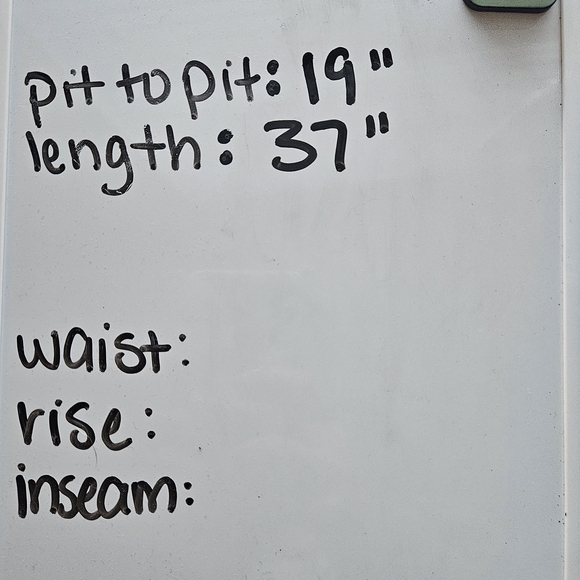 pit to pit: 19"
length: 37"
waist:
rise:
inseam: